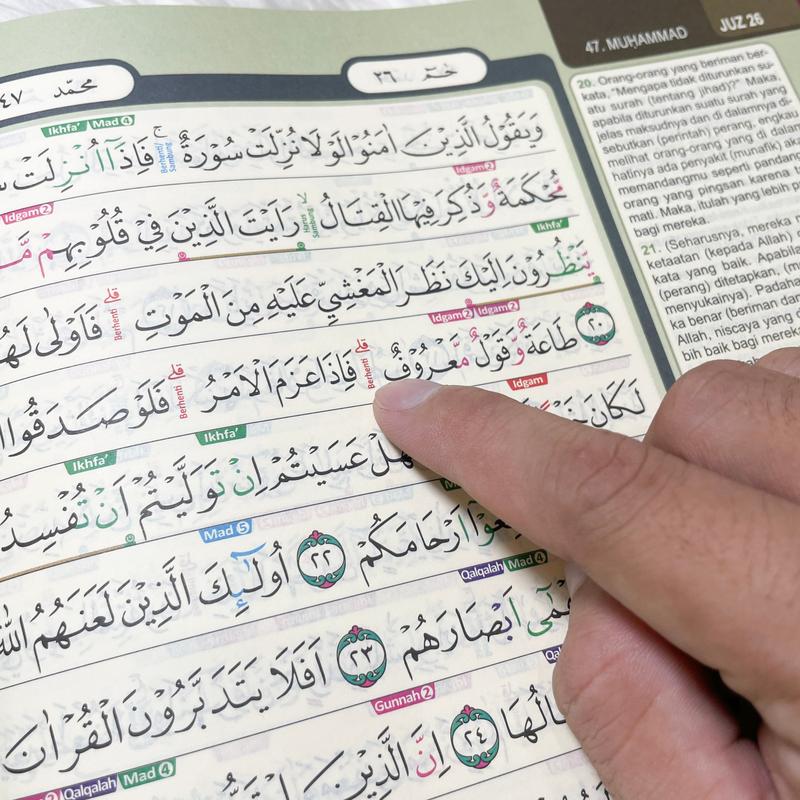 47. MUḤAMMAD
JUZ 26
حٰمۤ ٢٦
محمّد ٤٧
Ikhfa' Mad 4
وَيَقُوْلُ الَّذِيْنَ اٰمَنُوْا لَوْلَا نُزِّلَتْ سُوْرَةٌ ۚ فَاِذَآ اُنْزِلَتْ
Berhenti/Sambung
Idgam 2
Idgam 2
مُّحْكَمَةٌ وَّذُكِرَ فِيْهَا الْقِتَالُ ۙ رَاَيْتَ الَّذِيْنَ فِيْ قُلُوْبِهِمْ
Harus Sambung
Ikhfa'
يَّنْظُرُوْنَ اِلَيْكَ نَظَرَ الْمَغْشِيِّ عَلَيْهِ مِنَ الْمَوْتِ ۗ فَاَوْلٰى
Berhenti
Idgam 2 Idgam 2
٢٠ طَاعَةٌ وَّقَوْلٌ مَّعْرُوْفٌ ۗ فَاِذَا عَزَمَ الْاَمْرُ ۗ فَلَوْ صَدَقُوا
Berhenti
Berhenti
Idgam
Ikhfa'
Ikhfa'
لَكَانَ
عَسَيْتُمْ اِنْ تَوَلَّيْتُمْ اَنْ تُفْسِدُ
Mad 5
اَرْحَامَكُمْ ٢٢ اُولٰۤىِٕكَ الَّذِيْنَ لَعَنَهُمُ اللّٰهُ
Qalqalah Mad 4
اَبْصَارَهُمْ ٢٣ اَفَلَا يَتَدَبَّرُوْنَ الْقُرْاٰنَ
Gunnah 2
٢٤ اِنَّ الَّذِيْنَ
Qalqalah Mad 4
20. Orang-orang yang beriman ber-
kata, "Mengapa tidak diturunkan su-
atu surah (tentang jihad)?" Maka,
apabila diturunkan suatu surah yang
jelas maksudnya dan di dalamnya di-
sebutkan (perintah) perang, engkau
melihat orang-orang yang di dalam
hatinya ada penyakit (munafik)
memandangmu seperti
orang yang pingsan karena
mati. Maka, itulah yang lebih
bagi mereka.
21. (Seharusnya, mereka
ketaatan (kepada Allah)
kata yang baik. Apabila
(perang) ditetapkan,
menyukainya). Padahal
ka benar (beriman dan
Allah, niscaya yang
bih baik bagi